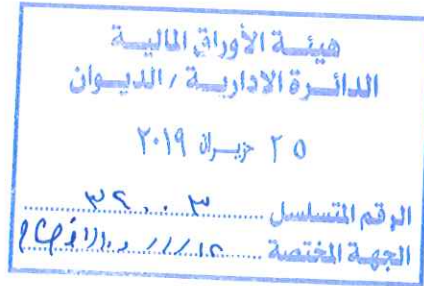 هيئة الأوراق المالية
الدائرة الادارية / الديوان
٢٥ حزيران ٢٠١٩
الرقم المتسلسل ٣٢٠٠٣
الجهة المختصة ١١/١٢